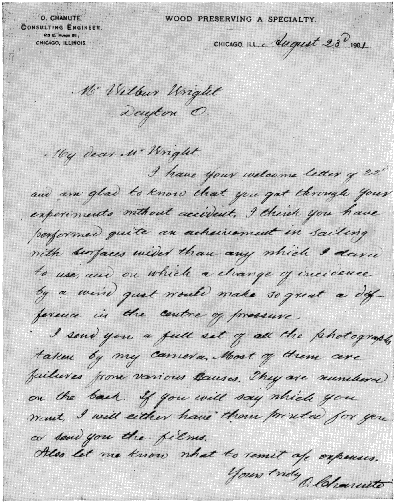 O. CHANUTE,
CONSULTING ENGINEER.
413 E. HURON ST.,
CHICAGO, ILLINOIS.
WOOD PRESERVING A SPECIALTY.
CHICAGO, ILL., August 23d 1901
Mr Wilbur Wright
Dayton O.
My dear Mr Wright
I have your welcome letter of 22d
and am glad to know that you got through your
experiments without accident. I think you have
performed quite an achievement in sailing
with surfaces wider than any which I dared
to use, and on which a change of incidence
by a wind gust would make so great a dif-
ference in the centre of pressure.
I send you a full set of all the photographs
taken by my camera. Most of them are
failures from various causes. They are numbered
on the back. If you will say which you
want I will either have them printed for you
or send you the films.
Also let me know what to remit a/c expenses.
Yours truly
O. Chanute